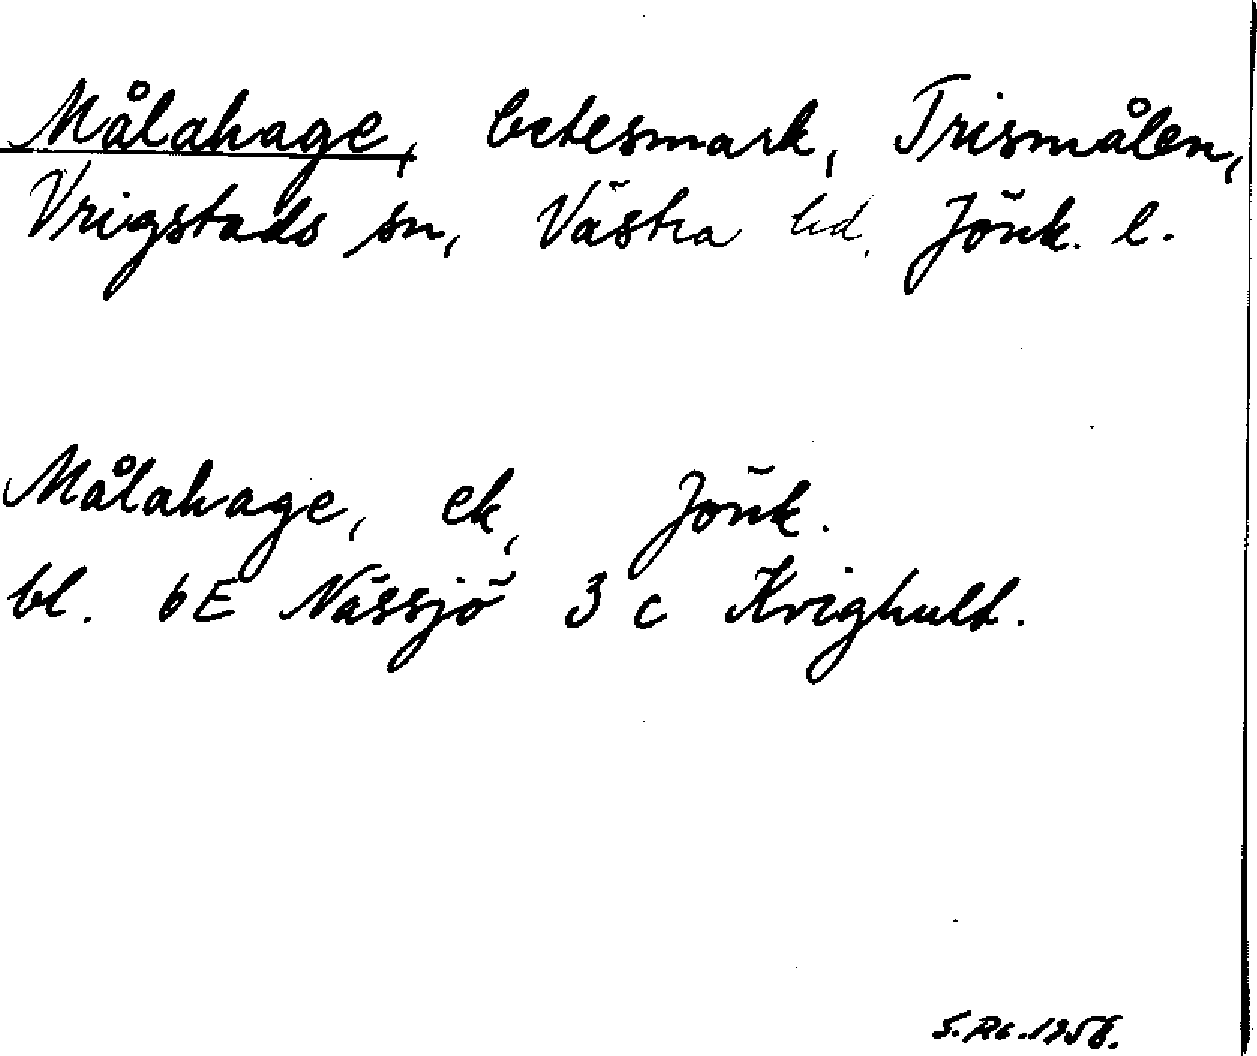 Målahage, betesmark, Trismålen,
Vrigstads sn, Västra hd. Jönk. l.
Målahage, ek, Jönk.
bl. 6E Nässjö 3 c Kvighult.
1958.